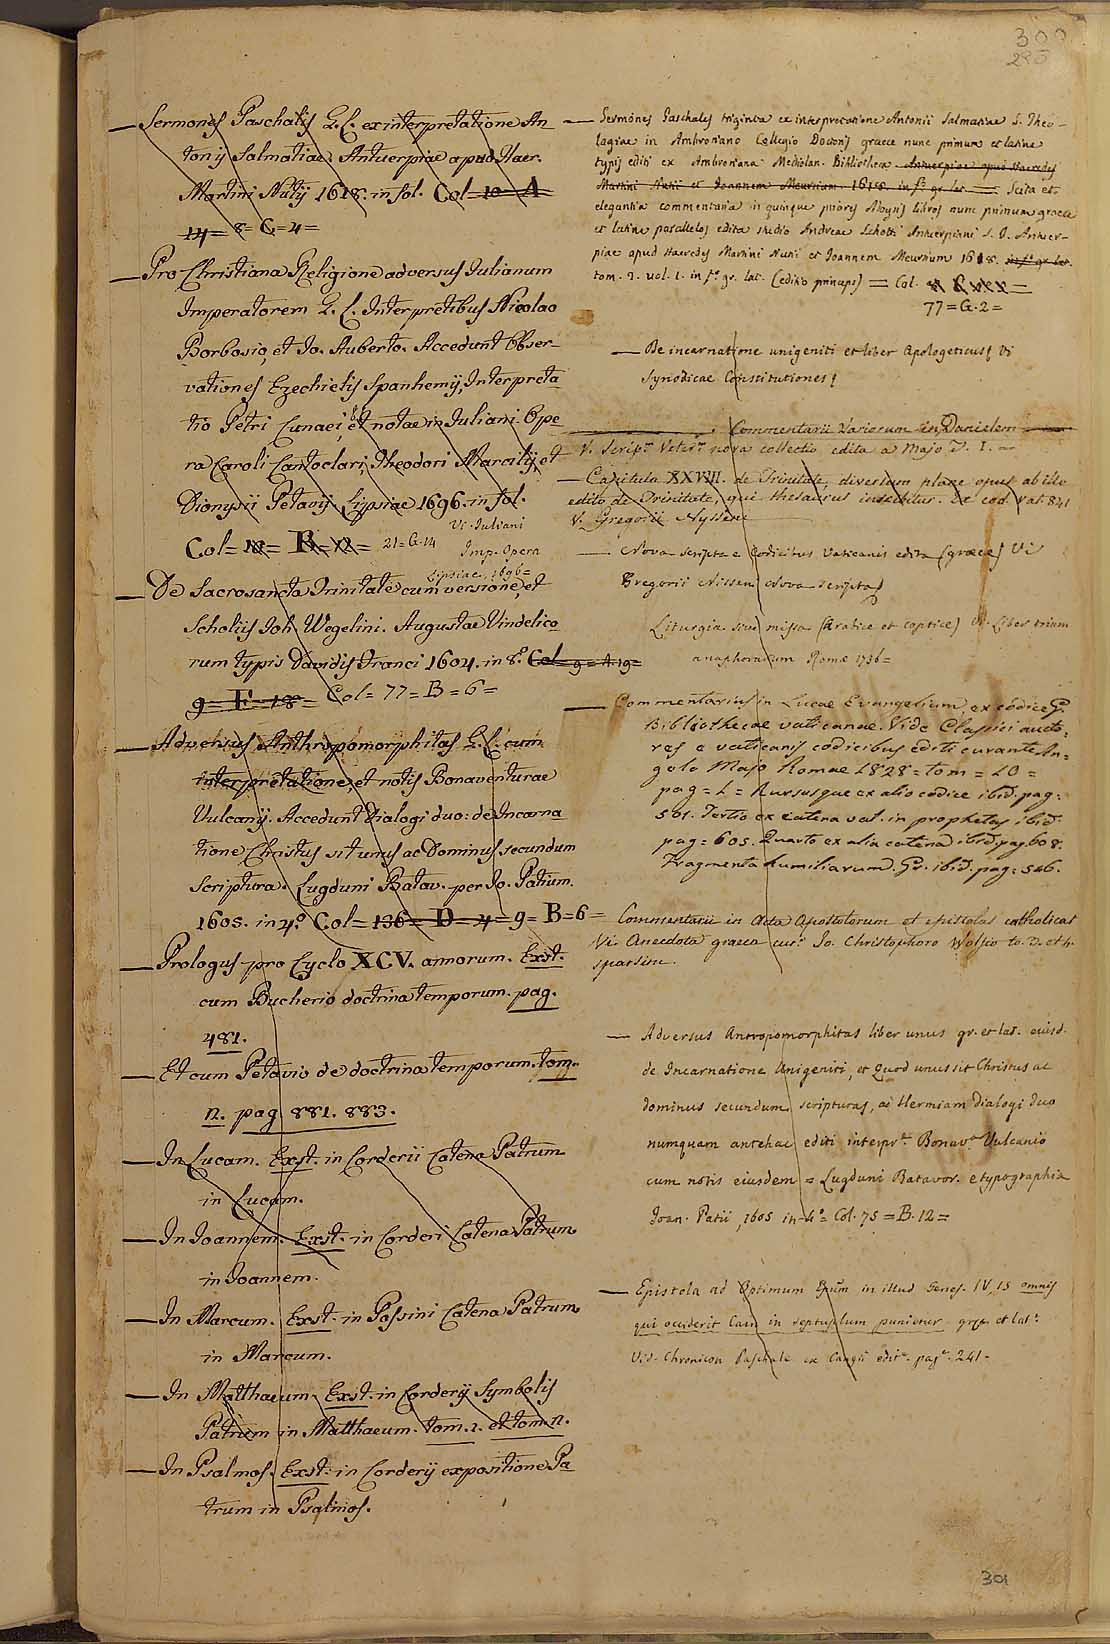 300
295
— Sermones Paschalis G. L. ex interpretatione An
tonij Salmatiae. Antuerpiae apud Haer.
Martini Nutij 1618. in fol. Col = 10 = A
14 = 8 = G = 4 =
— Pro Christiana Religione adversus Iulianum
Imperatorem G. L. Interpretibus Nicolao
Borbosio, et Io. Auberto. Accedunt Obser-
vationes Ezechielis Spanhemij, Interpreta
tio Petri Cunaei, et notae in Iuliani Ope
ra Caroli Cantoclari, Theodori Marcilij, et
Dionysii Petavij Lypsiae 1696. in fol.
Vi. Iuliani
Col = = 21 = G. 14 Imp. Opera
Lipsiae, 1696 =
— De Sacrosancta Trinitate cum versione, et
Scholiis Ioh. Wegelini. Augustae Vindelico
rum typis Davidis Franci 1604. in 8.º Col = 9 = A. 19 =
9 = F = 18 = Col = 77 = B = 6 =
— Adversus Anthropomorphitas G. L. cum
interpretatione, et notis Bonaventurae
Vulcanij. Accedunt Dialogi duo: de Incarna
tione Christus sit unus ac Dominus secundum
Scriptura. Lugduni Batav. per Io. Patium.
1605. in 4.º Col = 136 = D = 4 = 9 = B = 6 =
— Prologus pro Cyclo XCV. annorum. Exst.
cum Bucherio doctrina temporum. pag.
481.
— Et cum Petavio de doctrina temporum. tom.
n. pag. 881. 883.
— In Lucam. Exst. in Corderii Catena Patrum
in Lucam.
— In Ioannem. Exst. in Corderi Catena Patrum
in Ioannem.
— In Marcum. Exst. in Possini Catena Patrum
in Marcum.
— In Matthaeum. Exst. in Corderij Symbolis
Patrum in Matthaeum. tom. 1. et tom. n.
— In Psalmos. Exst. in Corderij expositione Pa
trum in Psalmos.
— Sermones Paschales triginta ex interpretatione Antonii Salmatiae S. Theo-
logiae in Ambrosiano Collegio Doctoris graece nunc primum et latine
typis editi ex Ambrosiana Mediolan. Bibliotheca. Antuerpiae apud Haeredes
Martini Nutii et Ioannem Meursium 1618. in f.º gr. lat. = Scita et
elegantia commentaria in quinque priores Moysis libros nunc primum graece
et latine parallelos edita studio Andreae Schotti Antuerpiani S. I. Antuer-
piae apud Haeredes Martini Nutii et Ioannem Meursium 1618. in f.º gr. lat.
tom. 2. vol. 1. in f.º gr. lat. (editio princeps) = Col.
77 = G. 2 =
— De incarnatione unigeniti et liber Apologeticus Vi
Synodicae Constitutiones
Commentarii Variorum in Danielem
V. Script.m Veter.m nova collectio edita a Majo T. I. —
— Capitula XXVIII. de Trinitate, diversum plane opus ab illo
edito de Trinitate, qui thesaurus inscribitur. Ex cod. Vat. 841
V. Gregorii Nysseni
— Nova scripta e Codicibus Vaticanis edita (graece) Vi
Gregorii Nisseni Nova scripta
Liturgia sive missa (Arabice et coptice) Vi. Liber trium
anaphorarum Romae 1736 =
— Commentarius in Lucae Evangelium, ex codice
Bibliothecae vaticanae. Vide Classici aucto-
res e vaticanis codicibus editi curante An-
gelo Majo Romae 1828 = tom = 10 =
pag = 1 = Rursusque ex alio codice ibid. pag:
501. Tertio ex catena vat. in prophetas ibid.
pag = 605. Quarto ex alia catena ibid. pag. 608.
Fragmenta humiliarum. Gr. ibid. pag: 546.
Commentarii in Acta Apostolorum et epistolas catholicas
Vi. Anecdota graeca cur.e Io. Christophoro Wolfio to. 3. et 4.
sparsim.
— Adversus Antropomorphitas liber unus gr. et lat. eiusd.
de Incarnatione Unigeniti, et Quod unus sit Christus ac
dominus secundum scripturas, ad Hermiam Dialogi duo
numquam antehac editi interpr.te Bonav.a Vulcanio
cum notis eiusdem = Lugduni Batavor. e typographia
Ioan. Patii, 1605 in 4.º Col. 75 = B. 12 =
— Epistola ad Optimum Epum in illud Genes. IV, 15 omnis
qui occiderit Cain in septuplum punietur graece et lat.e
Vid. Chronicon Paschale ex Cangii edit.e pag.a 241.
301